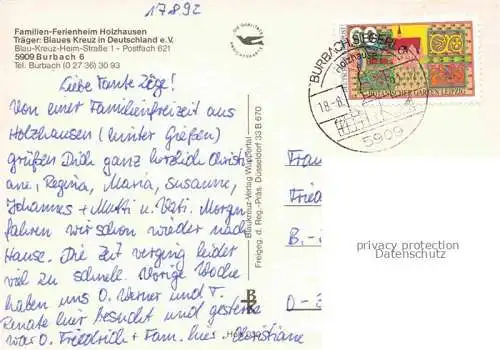 17.8.92
Familien-Ferienheim Holzhausen
Träger: Blaues Kreuz in Deutschland e.V.
Blau-Kreuz-Heim-Straße 1 - Postfach 621
5909 Burbach 6
Tel. Burbach (0 27 36) 30 93
Liebe Tante
Von einer Familienfreizeit aus
Holzhausen (hinter Gießen)
grüßen Dich ganz herzlich Christi-
ane, Regina, Maria, Susanne,
Johannes + Mutti u. Vati. Morgen
fahren wir schon wieder nach
Hause. Die Zeit verging leider
viel zu schnell. Vorige Woche
haben uns O. Werner und T.
Renate hier besucht und gestern
war O. Friedrich + Fam. hier. Christiane
Blaukreuz-Verlag Wuppertal
Freigeg. d. Reg.-Präs. Düsseldorf 33 B 670
BURBACH, SIEGERL
Holzhausen
18.-8.
5909
BOTANISCHER GARTEN LEIPZIG
Frau
Fried
B.-
O-
privacy protection
Datenschutz